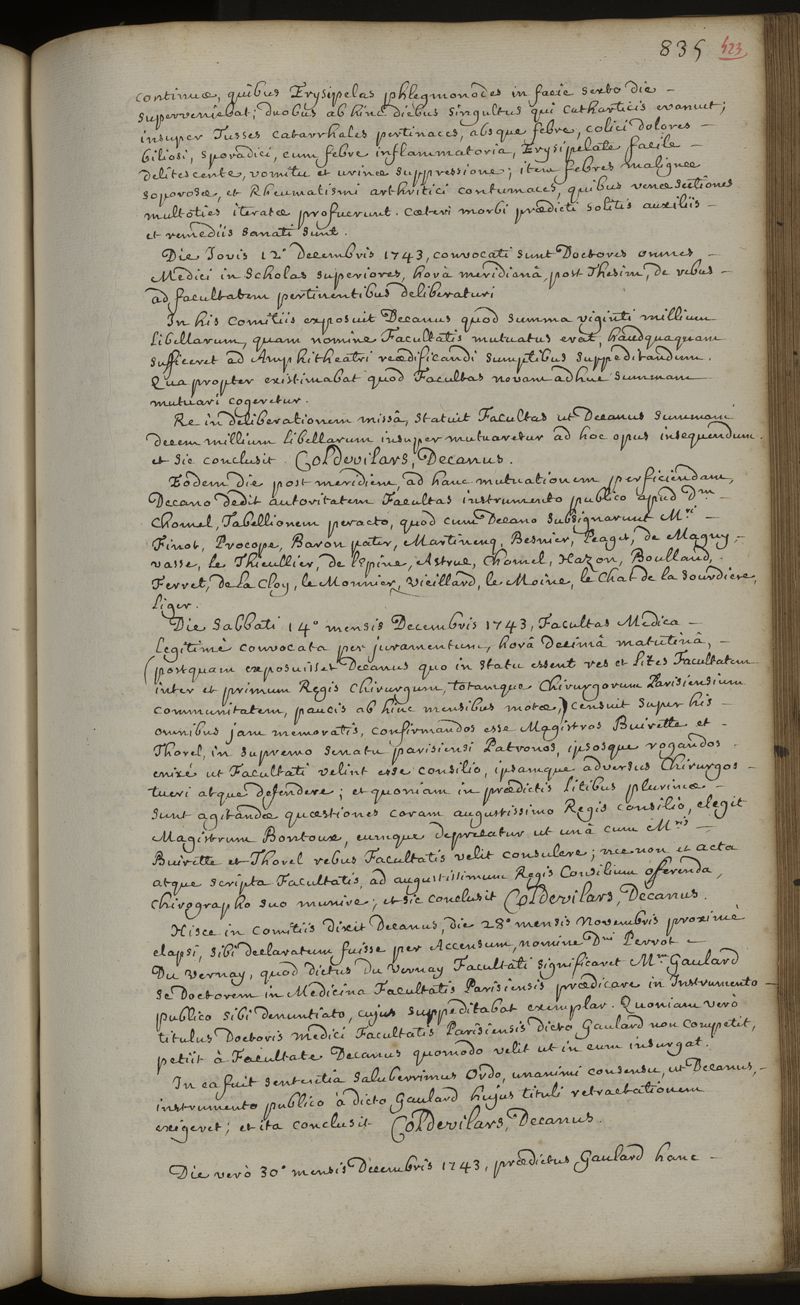 835 423
continuæ, quibus Erysipelas phlegmonodes in facie sexto die –
superveniebat; duobus ab hinc diebus singultus qui catharticis evanuit;
insuper Tusses catarrhales pertinaces, absque febre, colici dolores –
biliosi, sporadici, cum febre inflammatoria, Erysipelate facile –
delitescente, vomitu et urinæ suppressione; item febres malignæ
soporosæ, et Rheumatismi arthritici contumaces, quibus venæ sectiones
multoties iteratæ profuerunt. cæteri morbi prædicti solitis auxiliis –
et remediis sanati sunt.
Die Jovis 12ª Decembris 1743, convocati sunt Doctores omnes –
Medici in Scholas superiores, horâ meridianâ, post Thesim, de rebus –
ad facultatem pertinentibus deliberaturi
In his comitiis exposuit Decanus quod summa viginti millium
Libellarum, quam nomine Facultatis mutuatus erat, haudquaquam
sufficeret ad Amphitheatri reædificandi sumptibus suppeditandum.
Qua propter existimabat quod Facultas novam adhuc summam
mutuari cogeretur.
Re in deliberationem missâ, statuit Facultas ut Decanus summam
decem millium Libellarum insuper mutuaretur ad hoc opus insequendum.
et sic conclusit. Col Devilars, Decanus.
Eodem die post meridiem, ad hanc mutuationem perficiendam,
Decano dedit autoritatem Facultas instrumento publico apud Dm –
Chomel, Tabellionem peracto, quod cum Decano subsignarunt Mri –
Finot, Procope, Baron pater, Martinenq, Besnier, Peaget, de Magny –
vasse, le Thieullier, de l'Epine, Astruc, Chomel, Hazon, Boulland,
Ferret, de la Cloy, le Monnier, Vieillard, le Moine, le Chat de la Sourdiere,
Liger.
Die Sabbati 14º mensis Decembris 1743, Facultas Medica –
Legitimè convocata per juramentum, horâ Decimâ matutinâ, –
(postquam exposuisset Decanus quo in statu essent res et Lites Facultatem
inter et primum Regis Chirurgum, totamque Chirurgorum Parisiensium
communitatem, paucis ab hinc mensibus motæ) censuit super his –
omnibus jam memoratis, confirmandos esse Magistros Buirette et –
Thorel, in supremo senatu parisiensi Patronos, ipsosque rogandos
enixè ut Facultati velint esse consilio, ipsamque adversus Chirurgos –
tueri atque defendere; et quoniam in prædictis Litibus plurimæ –
sunt agitandæ quæstiones coram augustissimo Regis consilio, elegit
Magistrum Bontoux, eumque deprecatur ut unâ cum Mris –
Buirette et Thorel rebus Facultatis velit consulere; nec non et acta
atque scripta Facultatis, ad augustissimum Regis Consilium offerenda,
chirographo suo munire; et sic conclusit Col Devilars, Decanus.
Hisce in comitiis dixit Decanus, die 28ª mensis Novembris proximè
elapsi, sibi declaratum fuisse per Accensum, nomine Dni Perrot –
Du Vernay, quod dictus du Vernay Facultati significaret Mrum Gaulard
se Doctorem in Medicina Facultatis Parisiensis prædicare in Instrumento –
publico sibi denuntiato, cujus suppeditabat exemplar. Quoniam verò
titulus Doctoris medici Facultatis Parisiensis dicto Gaulard non competit,
petiit à Facultate Decanus quomodo velit ut in eum insurgat.
In ea fuit sententia saluberrimus Ordo, unanimi consensu, ut Decanus, –
instrumento publico à dicto Gaulard hujus tituli retractationem
exigeret; et ita conclusit Col Devilars, Decanus.
Die verò 30ª mensis Decembris 1743, prædictus Gaulard hanc –